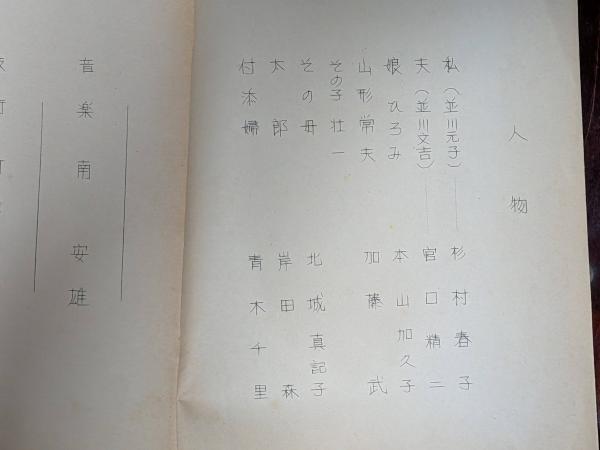 人物
私（並川元子）――杉村春子
夫（並川文吉）――宮口精二
娘ひろみ 本山加久子
山形常夫 加藤武
その子壮一
その母 北城真記子
太郎 岸田森
付添婦 青木千里
音楽 南安雄